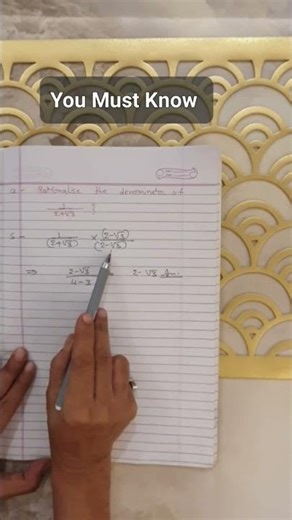 You Must Know
Q - Rationalise the denominator of
1/(2+√3) .
S → 1/(2+√3) × (2-√3)/(2-√3)
⇒ (2-√3)/(4-3) 2-√3 Ans.